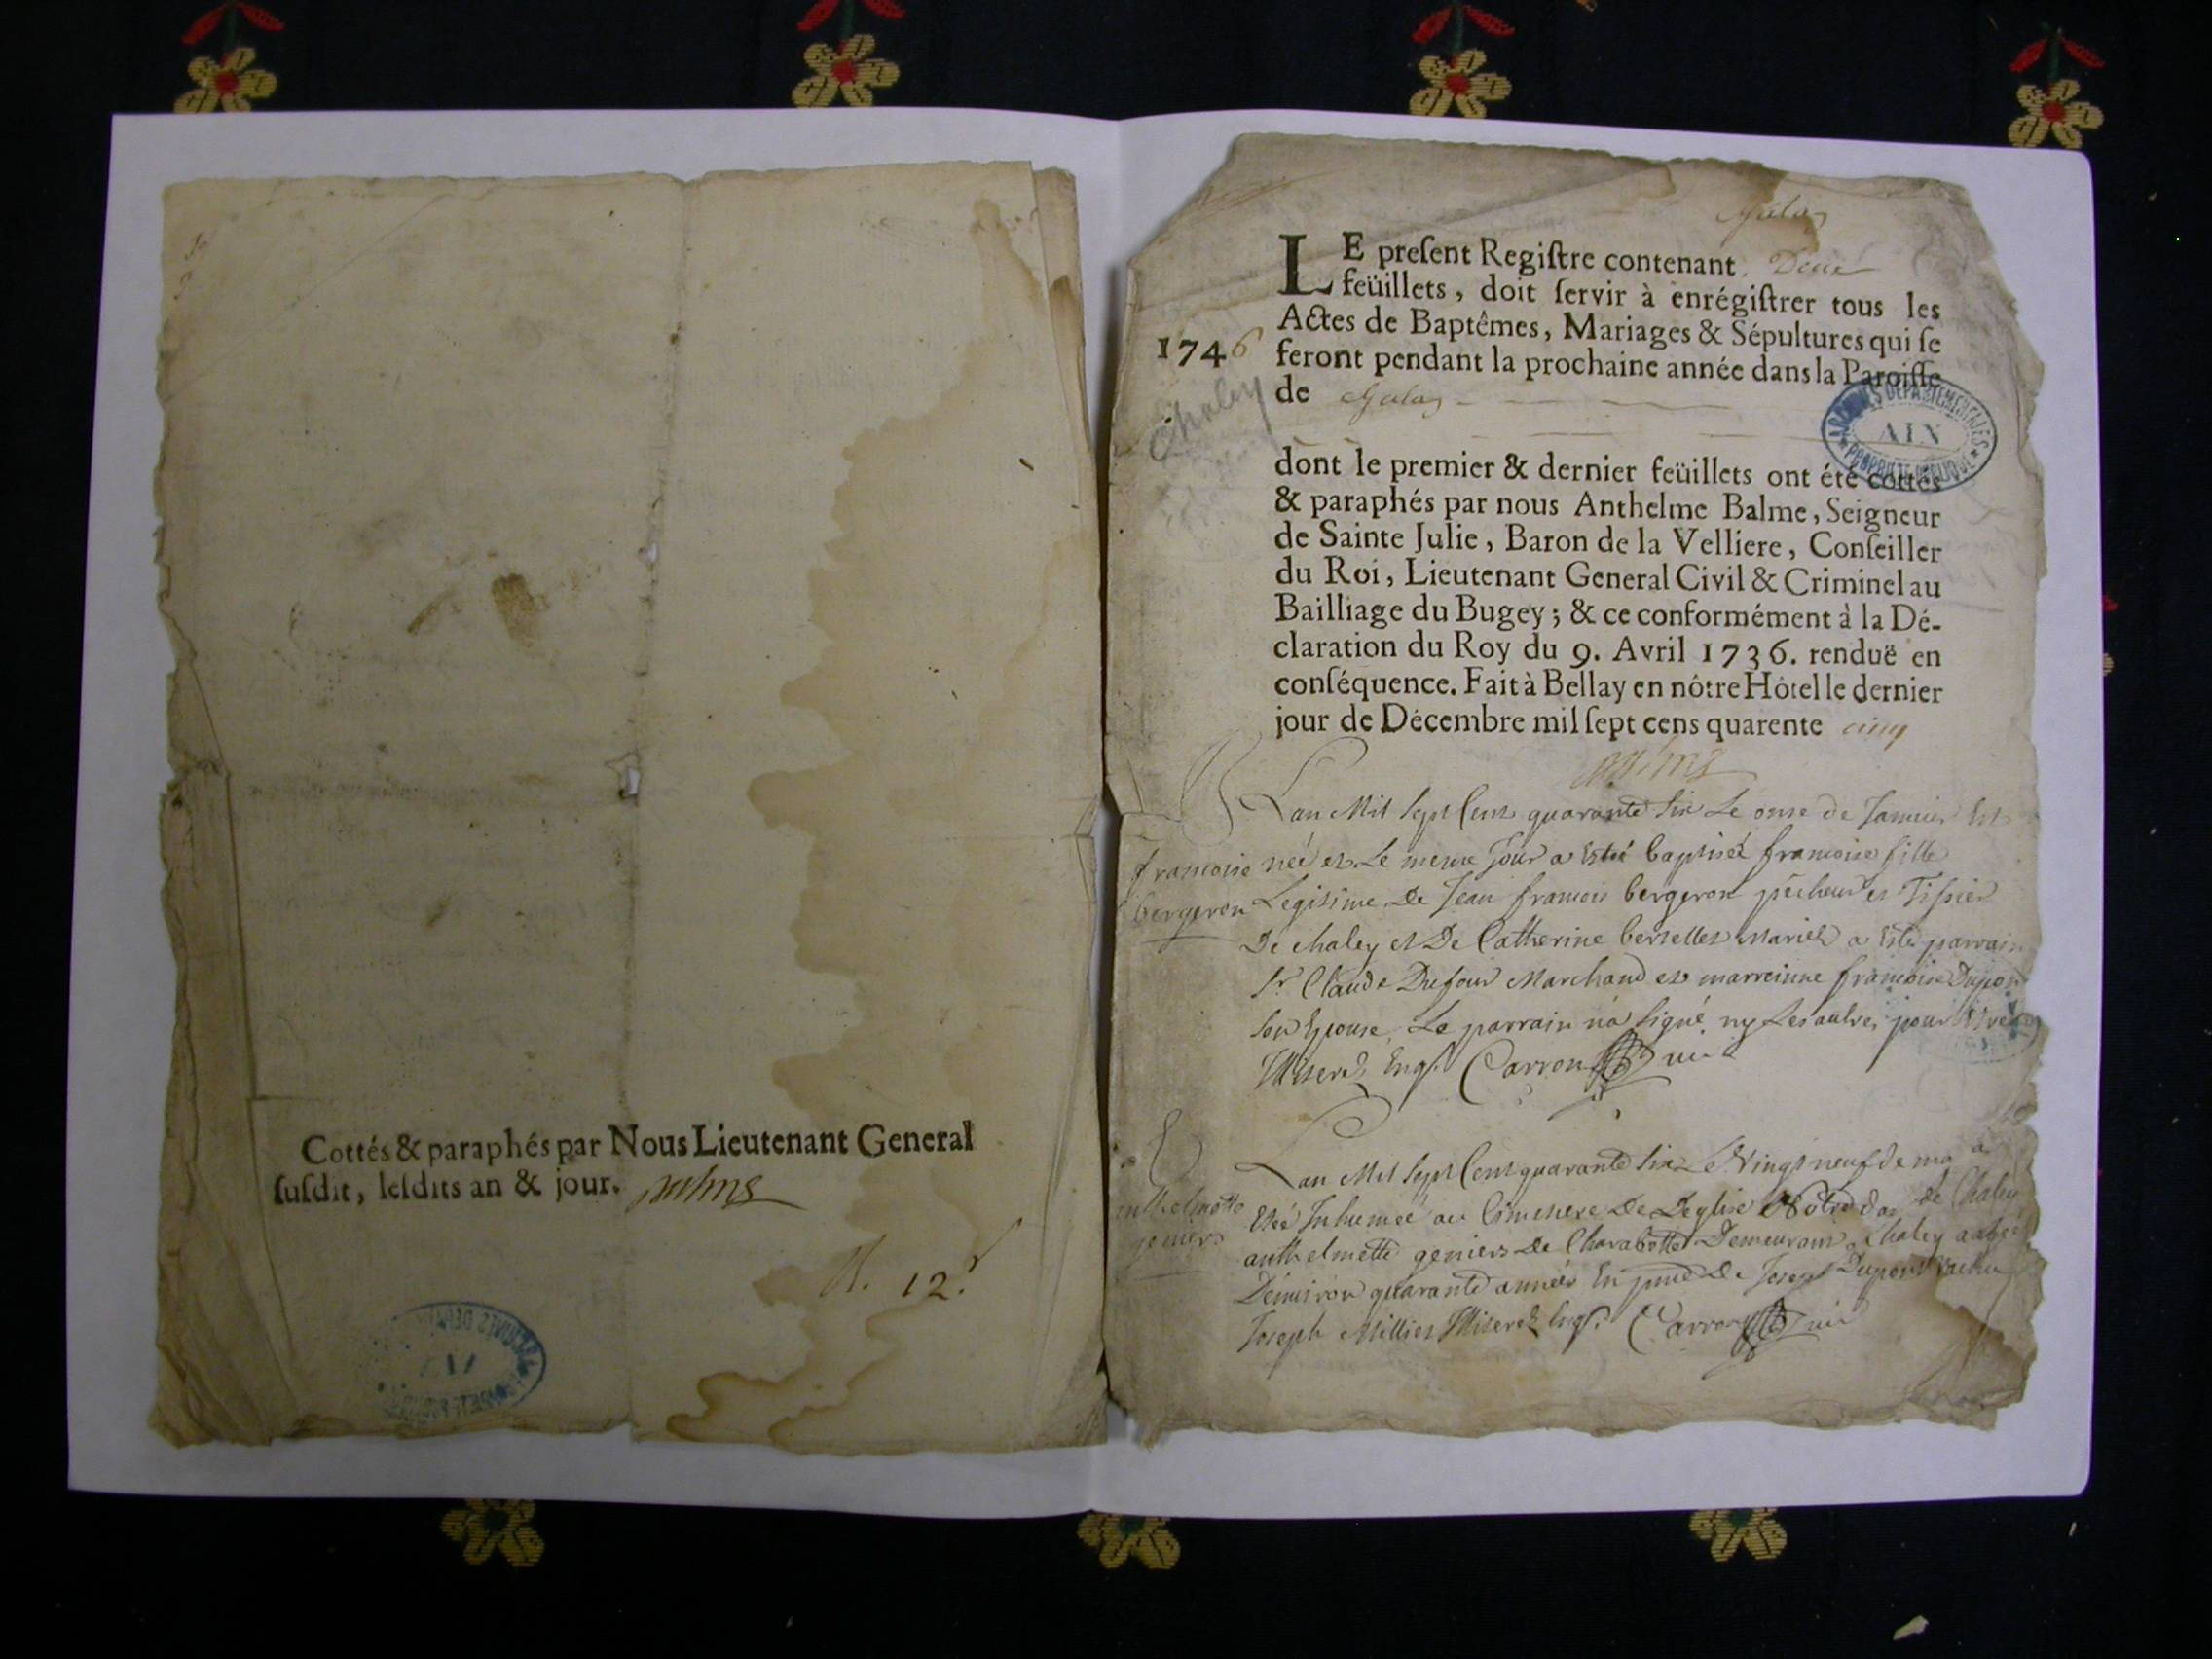 Cottés & paraphés par Nous Lieutenant General
ſuſdit, leſdits an & jour. Balme
R. 12.ˢ
ARCHIVES DÉPARTEMENTALES
AIN
PROPRIÉTÉ PUBLIQUE
Chaley
LE preſent Regiſtre contenant Deux
feüillets, doit ſervir à enrégiſtrer tous les
Actes de Baptêmes, Mariages & Sépultures qui ſe
1746
feront pendant la prochaine année dans la Paroiſſe
de Chaley
Chaley
ARCHIVES DÉPARTEMENTALES
AIN
PROPRIÉTÉ PUBLIQUE
dont le premier & dernier feüillets ont été cottés
& paraphés par nous Anthelme Balme, Seigneur
de Sainte Julie, Baron de la Velliere, Conſeiller
du Roi, Lieutenant General Civil & Criminel au
Bailliage du Bugey ; & ce conformément à la Dé-
claration du Roy du 9. Avril 1736. renduë en
conſéquence. Fait à Bellay en nôtre Hôtel le dernier
jour de Décembre mil ſept cens quarente cinq
Balme
B
Lan Mil Sept Cent quarante Six Le onze de Janvier Est
francoise née et Le meme Jour a Esté baptisée francoise fille
bergeron Legitime De Jean francois bergeron pécheur et Tissier
De chaley et De Catherine mariés a Esté parrain
Sr Claude Dufour Marchand et marreinne francoise Dupont
Son Epouse, Le parrain na Signé ny Les autres pour
Carron
E
Lan Mil Sept Cent quarante Six Le Vingt neuf de a
anthelmette Eté Inhumée au Cimetiere De Leglise Notre de Chaley
geniers anthelmette geniers De Charabotte Demeurant a Chaley agée
Denviron quarante années En De Joseph Dupont
Joseph Milliet Carron